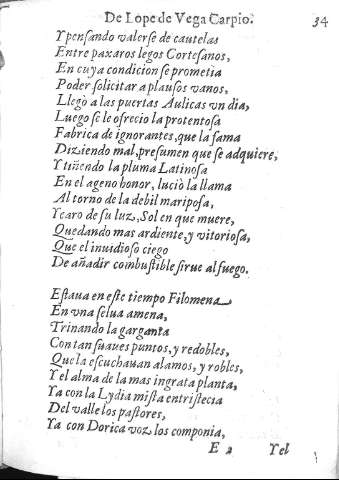 De Lope de Vega Carpio. 34
Y pensando valerse de cautelas
Entre paxaros legos Cortesanos,
En cuya condicion se prometia
Poder solicitar aplausos vanos,
Llegò a las puertas Aulicas vn dia,
Luego se le ofrecio la protentosa
Fabrica de ignorantes, que la fama
Diziendo mal, presumen que se adquiere,
Y tiñendo la pluma Latinosa
En el ageno honor, luciò la llama
Al torno de la debil mariposa,
Ycaro de su luz, Sol en que muere,
Quedando mas ardiente, y vitoriosa,
Que el inuidioso ciego
De añadir combustible sirue al fuego.
Estaua en este tiempo Filomena
En vna selua amena,
Trinando la garganta
Con tan suaues puntos, y redobles,
Que la escuchauan alamos, y robles,
Y el alma de la mas ingrata planta,
Ya con la Lydia mista entristecia
Del valle los pastores,
Ya con Dorica voz los componia,
E 2 Y el